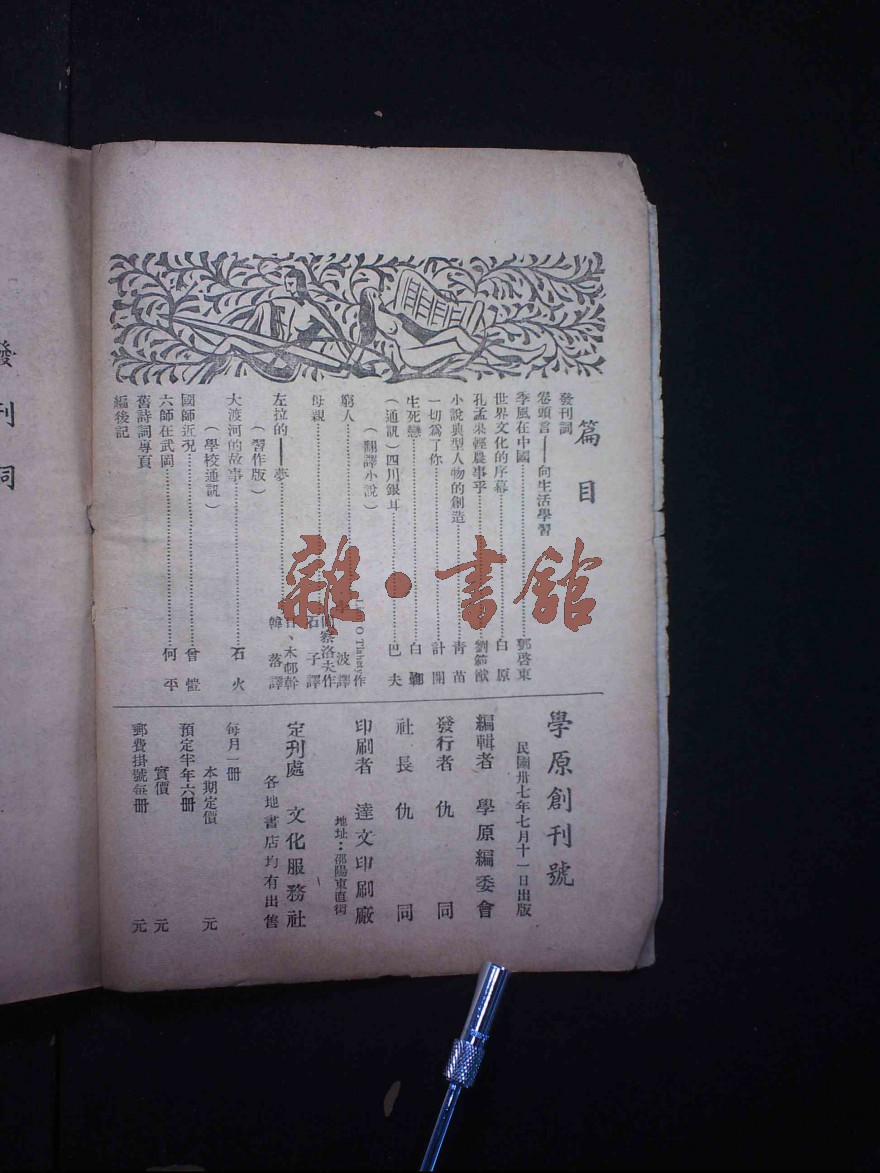 篇目
發刊詞
卷頭言——向生活學習
季風在中國 郭啓東
世界文化的序幕 白原
孔孟果輕農事乎
小說典型人物的創造 青苗
一切爲了你 計開
生死戀 白
(通訊)四川銀耳 巴夫
(翻譯小說)
窮人 作 波譯
母親 洛夫作 石子譯
左拉的——夢 韓落譯
(習作版)
大渡河的故事 石火
(學校通訊)
國師近況 曾愷
六師在武岡 何平
舊詩詞專頁
編後記
學原創刊號
民國卅七年七月十一日出版
編輯者 學原編委會
發行者 仇同
社長 仇同
印刷者 達文印刷廠
地址:邵陽東直街
定刊處 文化服務社
各地書店均有出售
每月一册
本期定價 元
預定半年六册
實價 元
郵費掛號每册 元
發刊詞
雜·書館